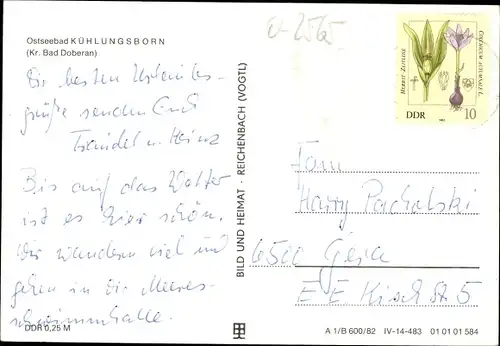 Ostseebad KÜHLUNGSBORN
(Kr. Bad Doberan)
Die besten Urlaubs-
grüße senden Euch
Traudel u. Heinz
Bis auf das Wetter
ist es hier schön.
Wir wandern viel und
gehen in die Meeres-
schwimmhalle.
DDR 0,25 M
BILD UND HEIMAT · REICHENBACH (VOGTL)
HERBST-ZEITLOSE
COLCHICUM AUTUMNALE L.
DDR 10
Fam
Harry
6500 Gera
E E Kisch Str 5
A 1/B 600/82 IV-14-483 01 01 01 584